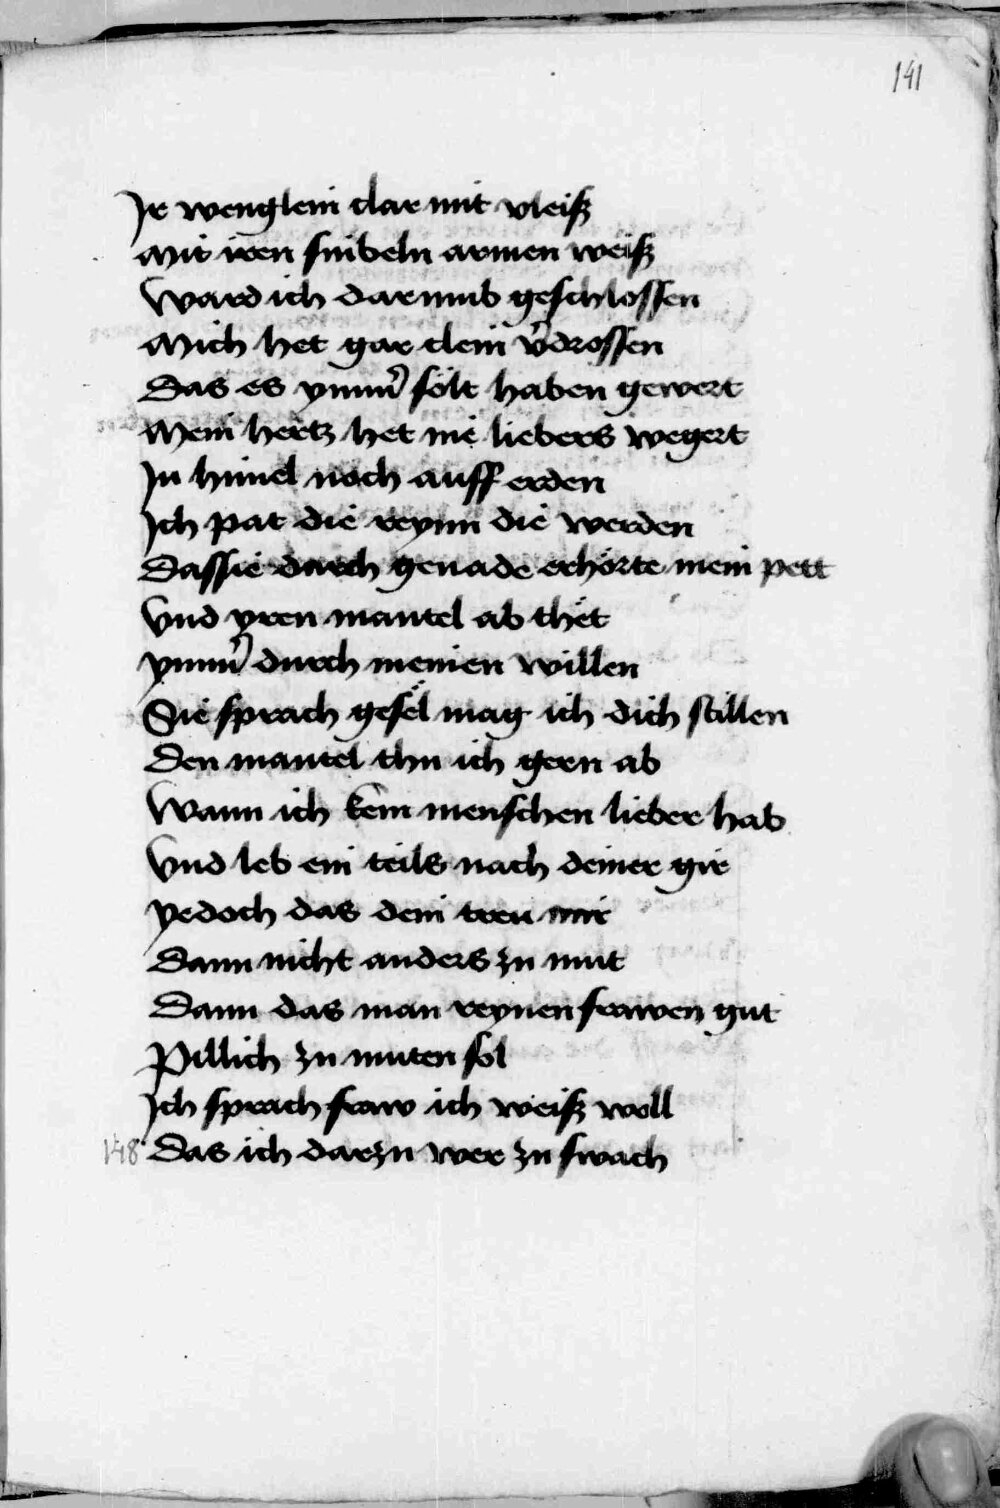 141
Jr wenglein clar mit vleiß
Mit iren sinbeln armen weiß
Ward ich darumb geschlossen
Mich het gar clein v̾drossen
Das es ymm̾ sölt haben gewert
Mein hertz het nie liebers wegert
Jn himel noch auff erden
Jch pat die reynn die werden
Das sie durch genade erhörte mein pett
Vnd yren mantel ab thet
ymm̾ durch meinen willen
Sie sprach gesel mag ich dich stillen
Den mantel thu ich gern ab
Wann ich kein menschen lieber hab
Vnd leb ein teils nach deiner gir
Yedoch das dein treu mir
Dann nicht anders zu mut
Dann das man reynen frawen gut
Pillich zu muten sol
Jch sprach fraw ich weiß woll
148 Das ich darzu wer zu swach